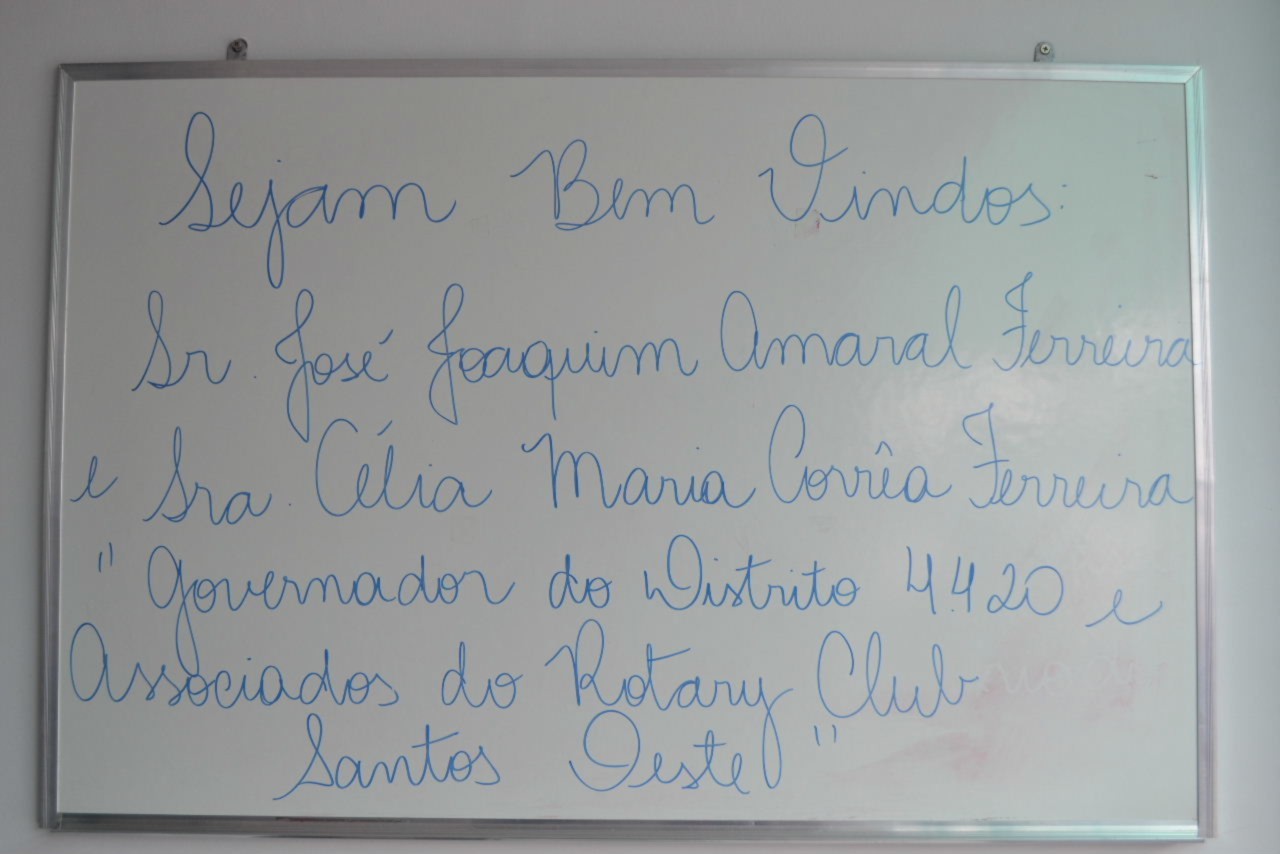 Sejam Bem Vindos:
Sr. José Joaquim Amaral Ferreira
e Sra. Célia Maria Corrêa Ferreira
"Governador do Distrito 4.420 e
Associados do Rotary Club
Santos Oeste"